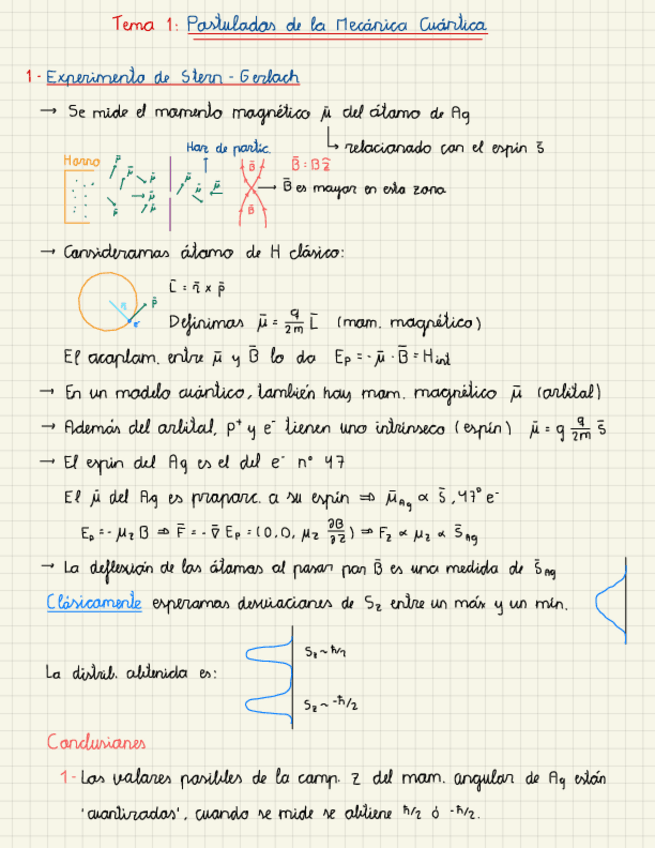 Tema 1: Postulados de la Mecánica Cuántica
1- Experimento de Stern - Gerlach
→ Se mide el momento magnético μ̄ del átomo de Ag
↳ relacionado con el espín s̄
Horno
Haz de partic.
B̄ = Bẑ
μ̄ μ̄ μ̄ μ̄ μ̄ μ̄ μ̄ μ̄
B̄
→ B̄ es mayor en esta zona
B̄
→ Consideramos átomo de H clásico:
L̄ = r̄ x p̄
r̄ p̄ e⁻
Definimos μ̄ = q/2m L̄ (mom. magnético)
El acoplam. entre μ̄ y B̄ lo da Ep = - μ̄ · B̄ = Hint
→ En un modelo cuántico, también hay mom. magnético μ̄ (orbital)
→ Además del orbital, p⁺ y e⁻ tienen uno intrínseco (espín) μ̄ = g q/2m s̄
→ El espín del Ag es el del e⁻ nº 47
El μ̄ del Ag es proporc. a su espín ⇒ μ̄Ag ∝ s̄, 47º e⁻
Ep = - μz B ⇒ F̄ = - ∇̄ Ep = (0,0, μz ∂B/∂z) ⇒ Fz ∝ μz ∝ s̄Ag
→ La deflexión de los átomos al pasar por B̄ es una medida de s̄Ag
Clásicamente esperamos desviaciones de Sz entre un máx y un mín.
Sz ~ ħ/2
La distrib. obtenida es:
Sz ~ -ħ/2
Conclusiones
1- Los valores posibles de la comp. z del mom. angular de Ag están
'cuantizados', cuando se mide se obtiene ħ/2 ó -ħ/2.